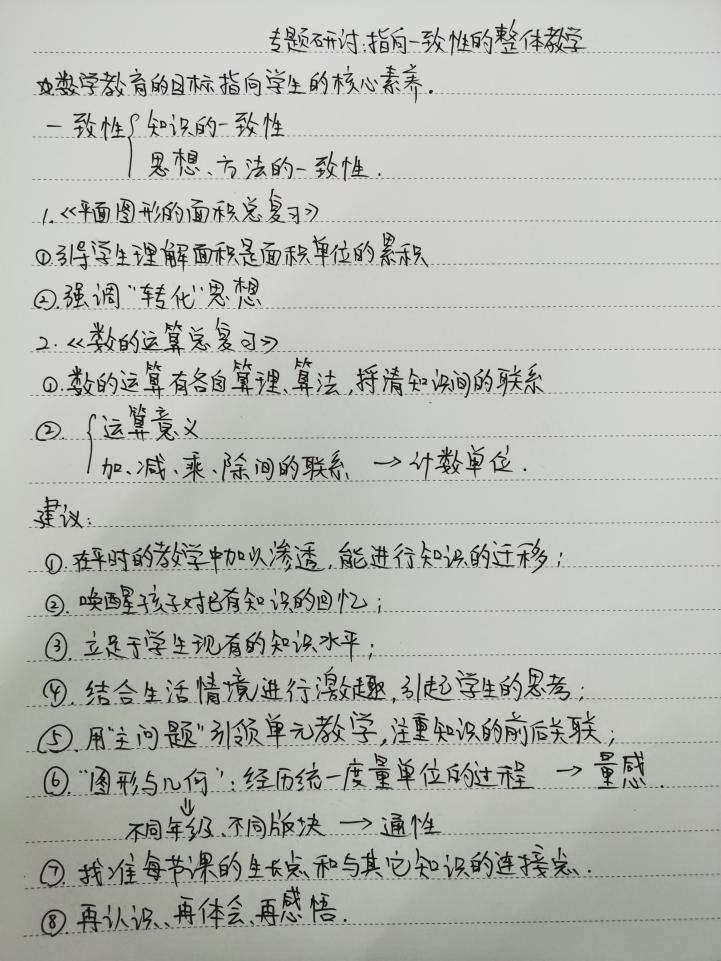 专题研讨:指向一致性的整体教学
☆数学教育的目标指向学生的核心素养.
一致性{知识的一致性
思想、方法的一致性.
1.《平面图形的面积总复习》
①引导学生理解面积是面积单位的累积
②.强调“转化”思想
2.《数的运算总复习》
①.数的运算有各自算理、算法,捋清知识间的联系
②.{运算意义
加、减、乘、除间的联系 → 计数单位.
建议:
①.在平时的教学中加以渗透,能进行知识的迁移;
②.唤醒孩子对已有知识的回忆;
③.立足于学生现有的知识水平;
④.结合生活情境进行激趣,引起学生的思考;
⑤.用“主问题”引领单元教学,注重知识的前后关联;
⑥.“图形与几何”:经历统一度量单位的过程 → 量感.
⇓
不同年级、不同版块 → 通性
⑦.找准每节课的生长点和与其它知识的连接点.
⑧.再认识、再体会、再感悟.